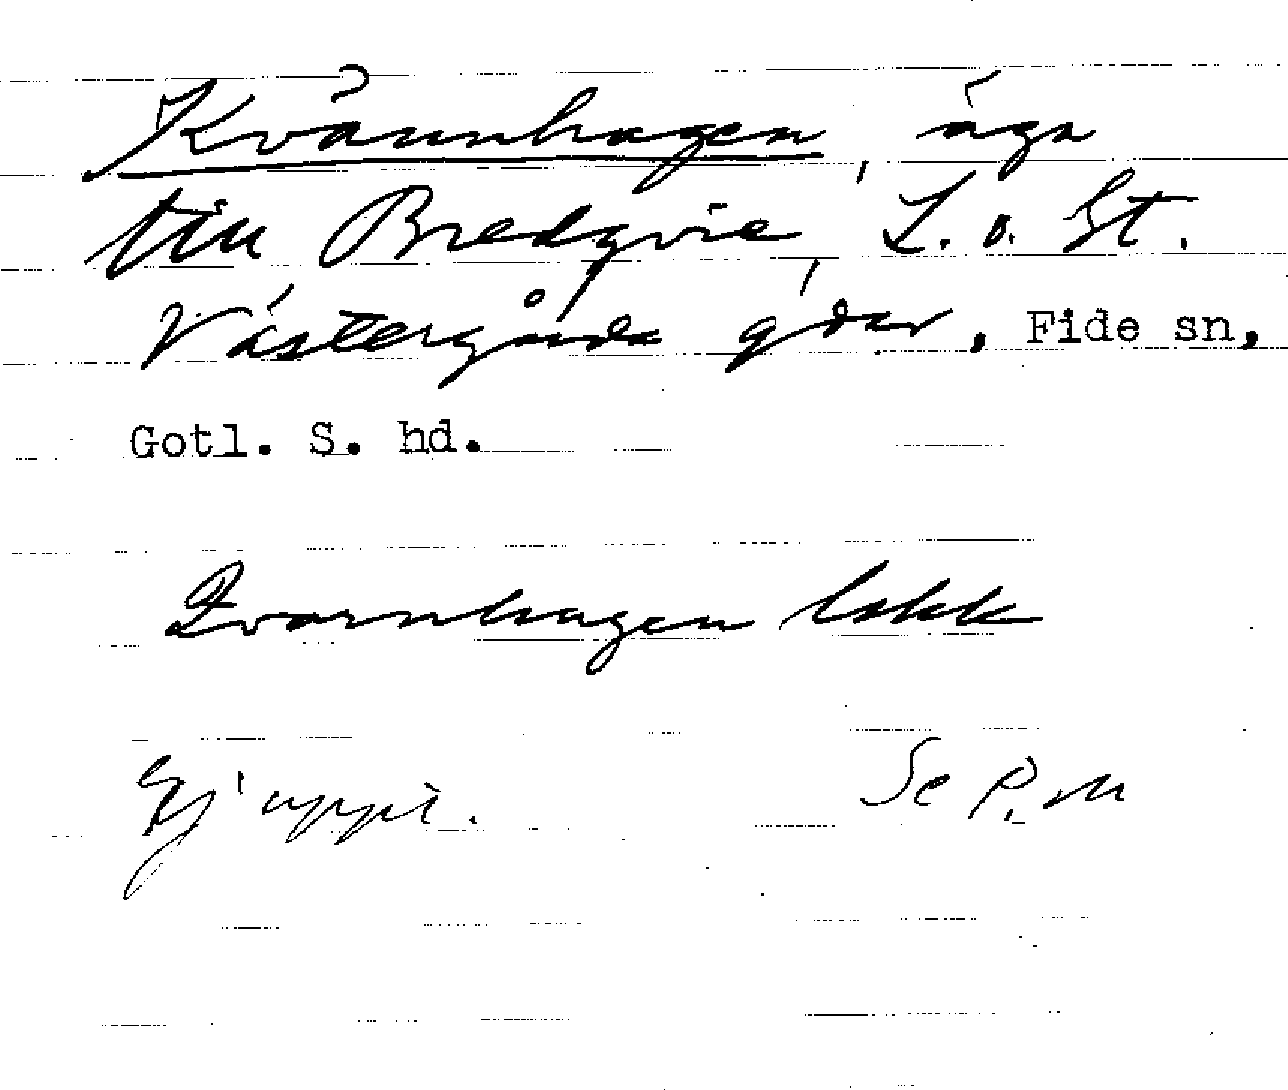 Kvännhagen, äga
till Bredqvie, L. o. St.
Västergårda g'dar, Fide sn,
Gotl. S. hd.
Qvarnhagen lokk
Ej uppt. Se P. M